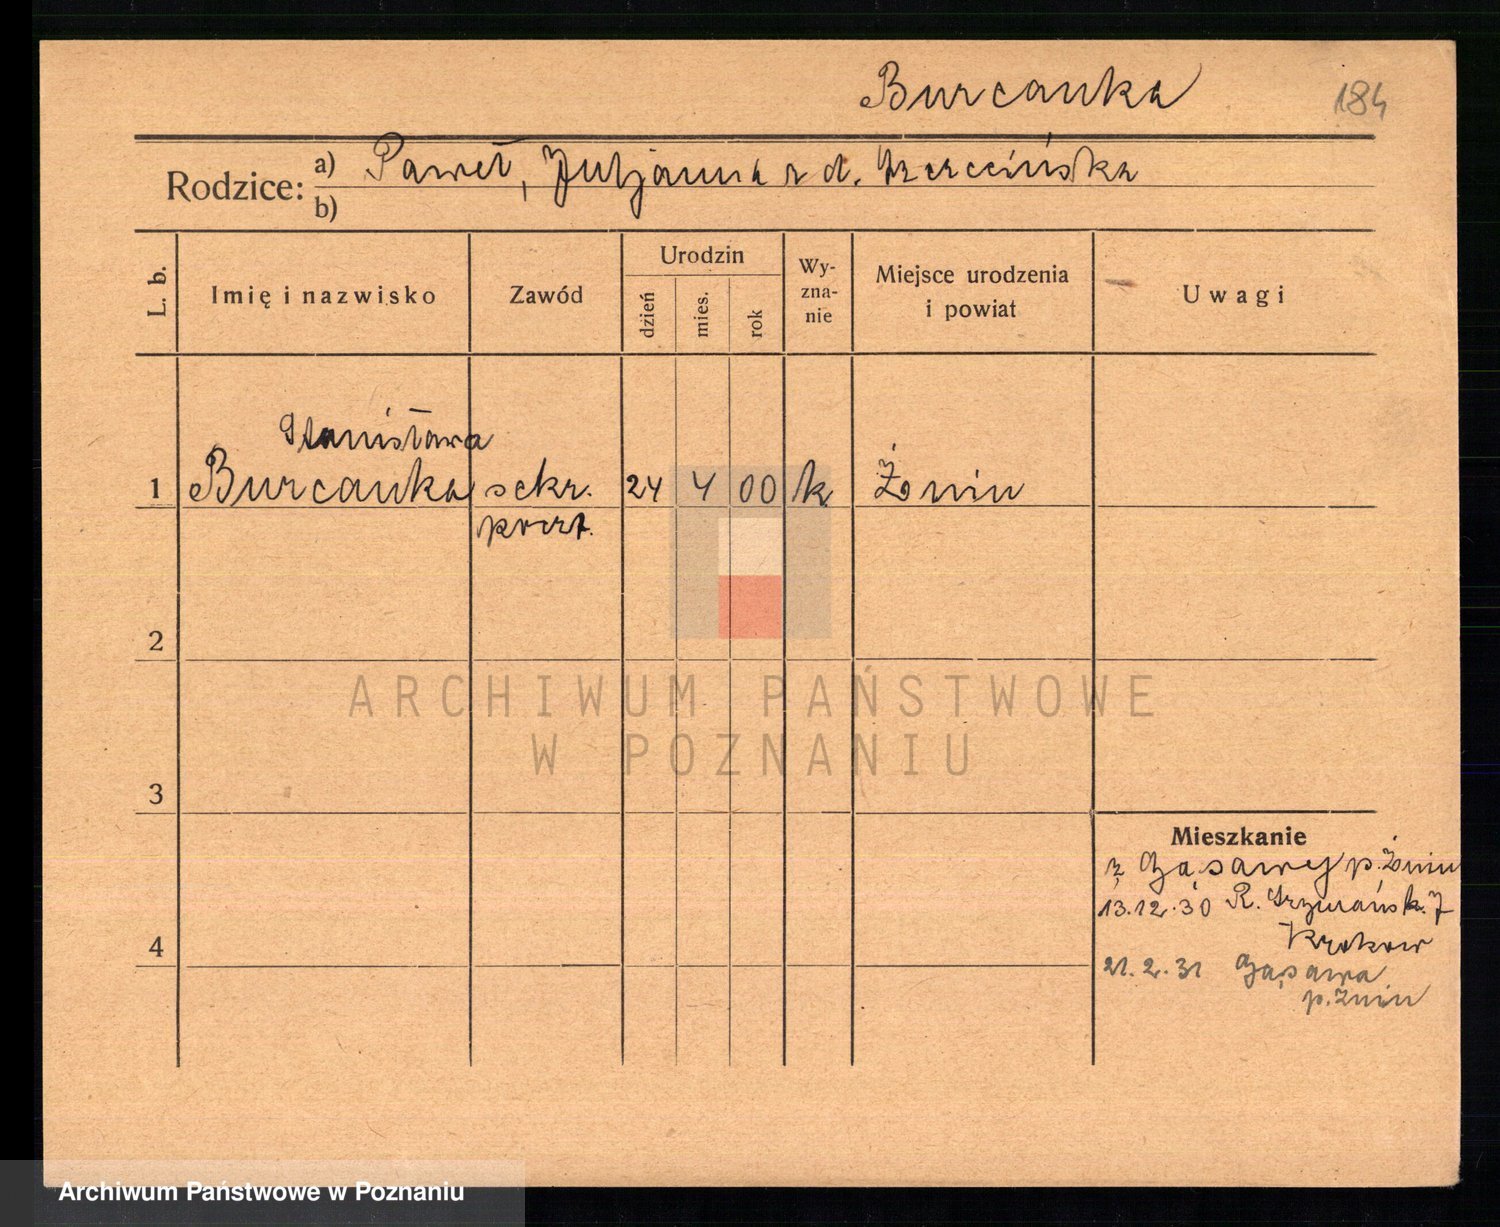 Burcanka 184
Rodzice: a) Paweł, Juljanna z d.
b)
L. b. Imię i nazwisko Zawód Urodzin dzień mies. rok Wy-zna-nie Miejsce urodzenia i powiat Uwagi
Stanisława
1 Burcanka sekr. 24 4 00 k. Żnin
poczt.
2
ARCHIWUM PAŃSTWOWE
W POZNANIU
3
Mieszkanie
z Gąsawy p. Żnin
13.12.30 R. 7
4 Krakow
21.2.31 Gąsawa
p. Żnin
Archiwum Państwowe w Poznaniu